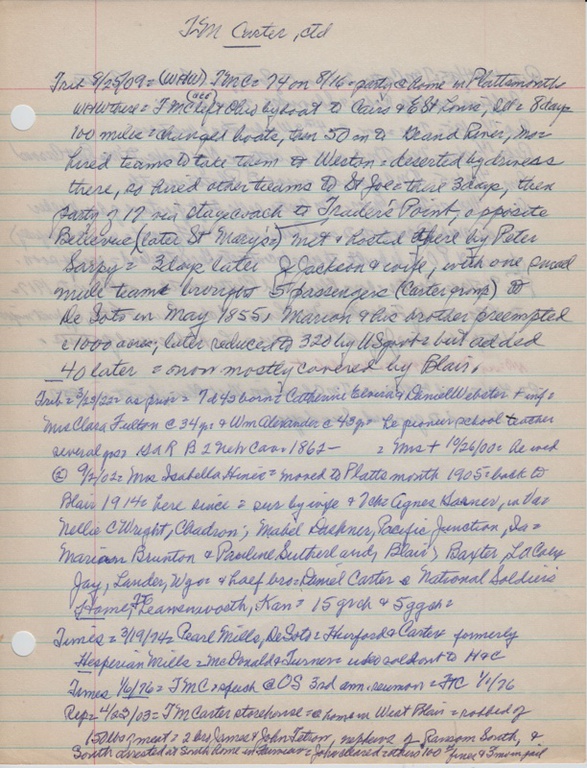 TM Carter, ctd
Trib 8/25/09 = (WHW) TMC = 74 on 8/16 = party @ home in Plattsmouth
WHW there = TMC left Ohio by boat to Cairo & E St Louis, Ill = 8 days
100 miles = changed boats, then 50 on to Grand River, Mo =
hired teams to take them to Weston = deserted by drivers
there, so hired other teams to St Joe = there 3 days, then
party of 17 via stagecoach to Trader's Point, opposite
Bellevue (later St Mary's) met & hosted there by Peter
Sarpy = 3 days later J Jackson & wife, with one
mule team brought 5 passengers (Carter group) to
De Soto in May 1855, Marion & his brother preempted
c 1000 acres; later reduced to 320 by US but added
40 later = now mostly covered by Blair.
Trib = 3/23/22 = as prior = 7 d 43 born = Catherine & Daniel Webster + inf =
Mrs Clara Fulton @ 34 yrs & Wm Alexander @ 43 yrs = he pioneer school teacher
several yrs = GAR B 2 Neb Cav = 1862 – = Mrs + 10/26/00 = he wed
② 9/2/02 = Mrs Isabella = moved to Plattsmouth 1905 = back to
Blair 1914 = here since = sur by wife & 7 ch = Agnes
Nellie C Wright, Chadron; Mabel, Pacific Junction, Ia =
Marion Brunton & Pauline Sutherland, Blair; Baxter,
Jay, Lander, Wyo = & half bro = Daniel Carter @ National Soldiers
Home, Ft Leavenworth, Kan = 15 grch & 5 ggch =
Times = 3/19/74 = Pearl Mills, De Soto = Hurford & Carter formerly
Hesperian Mills = McDonald & Turner = who sold out to H&C
Times 1/6/76 = TMC speech @ OS 3rd ann. reunion = Ft C 1/1/76
Rep = 4/23/03 = TM Carter storehouse = @ home in West Blair = robbed of
150 lbs meat = 2 bros James & John, nephews of Ransom South, &
South arrested at South home in = John cleared = others 100 fines & 3 mo in jail